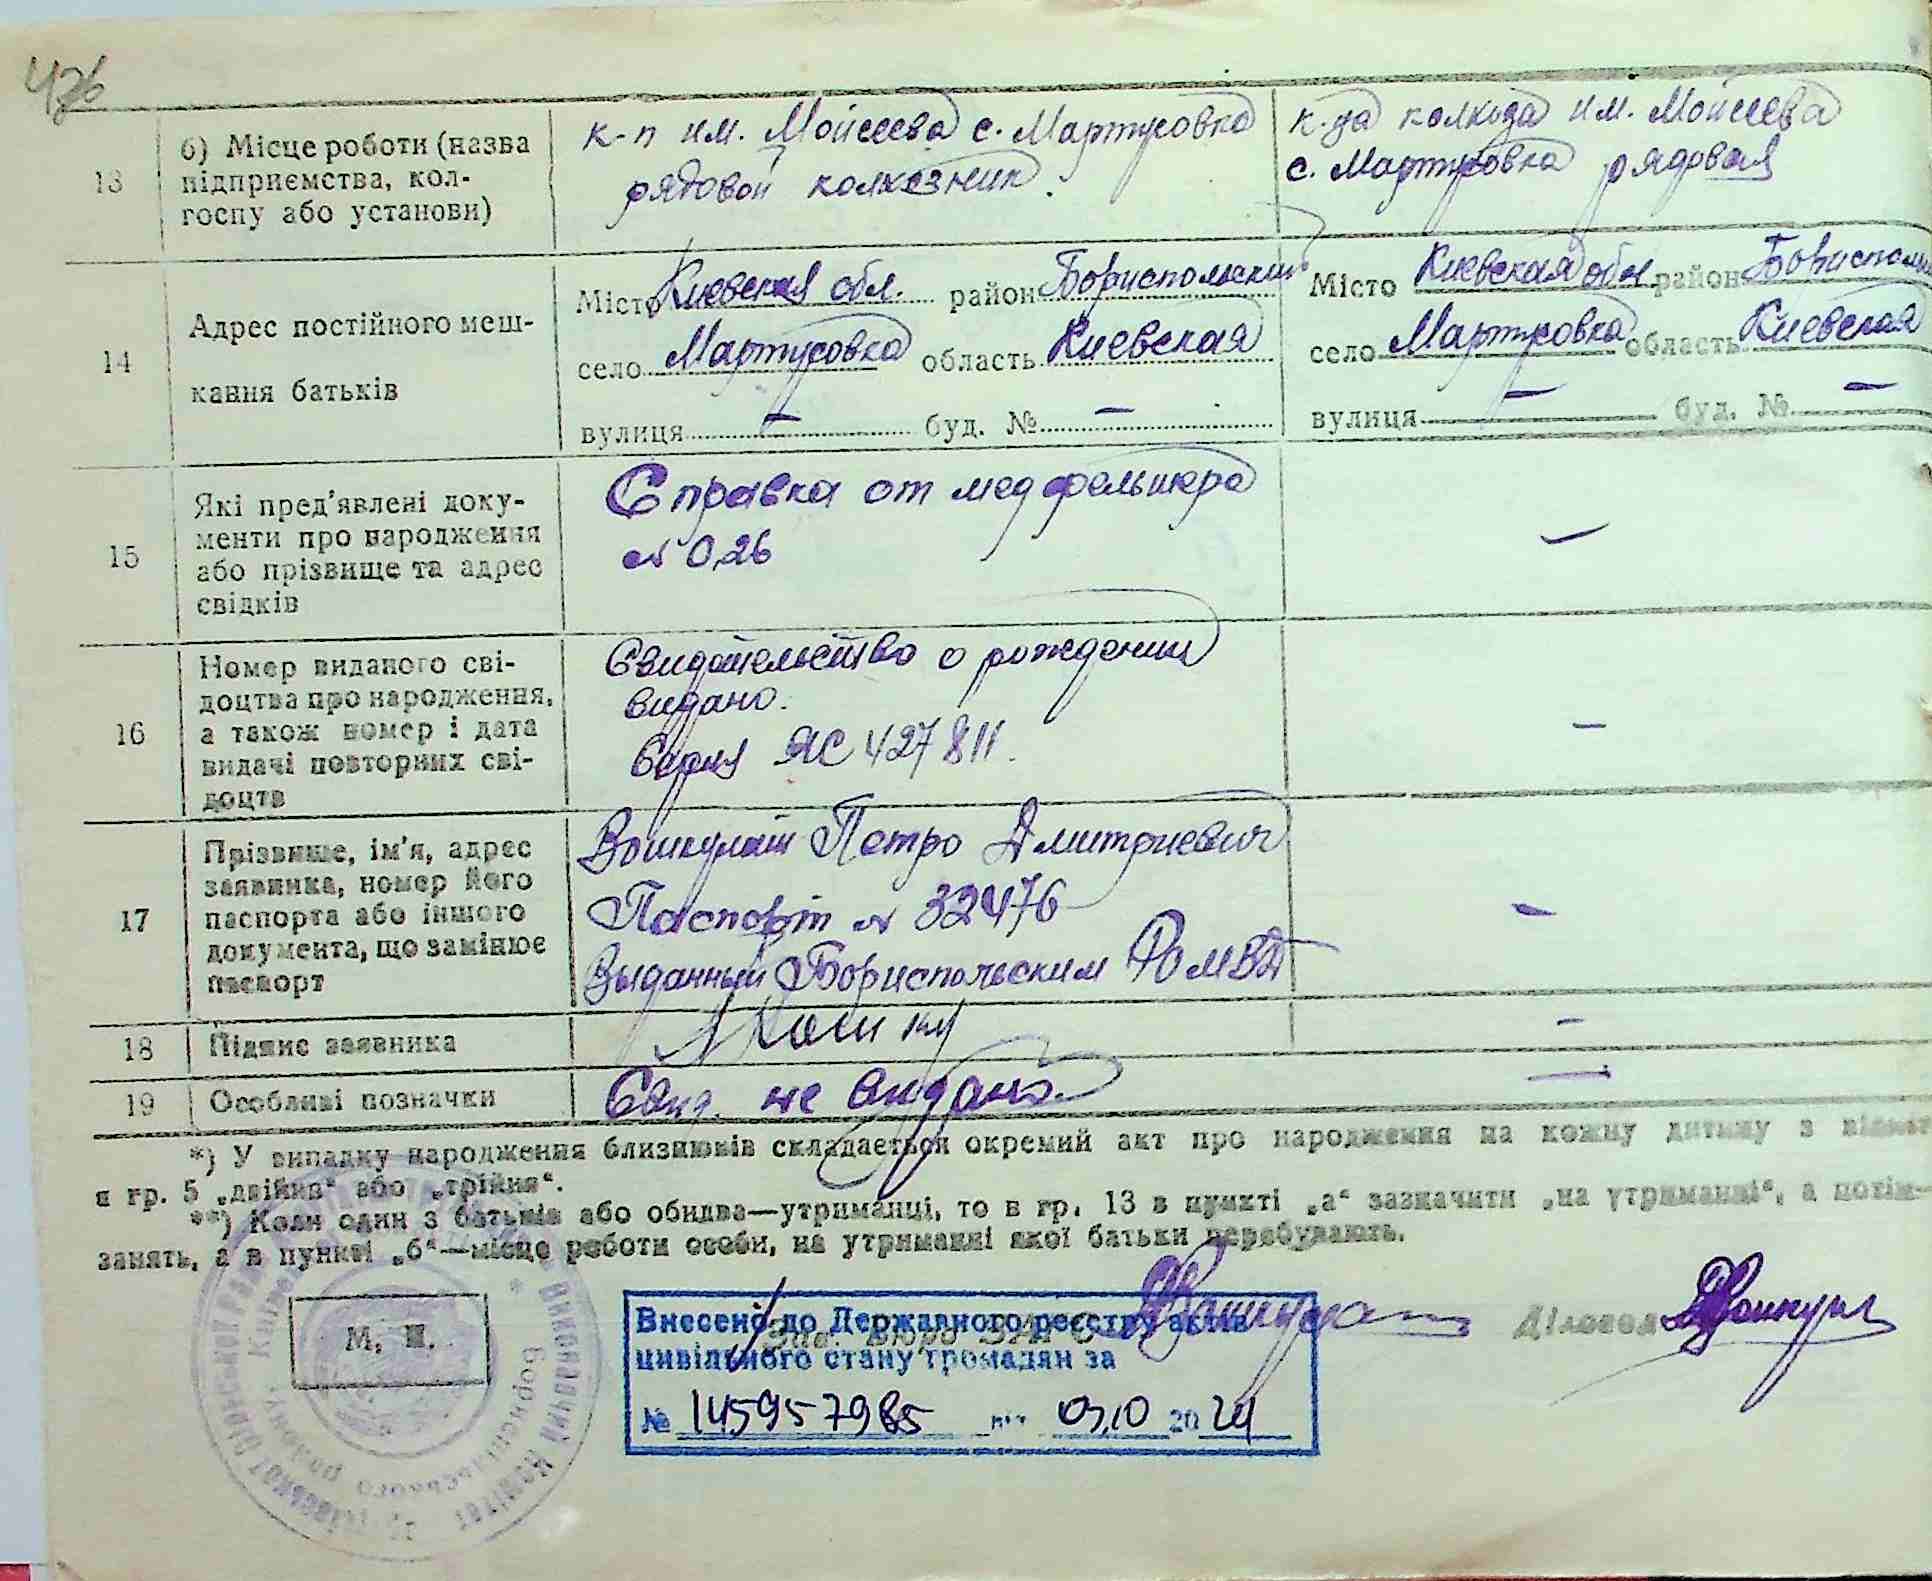 476
13
б) Місце роботи (назва
підприємства, кол-
госпу або установи)
к-п им. Мойсеева с. Мартусовка
рядовой колхозник.
к-да колхоза им. Мойсеева
с. Мартусовка рядовая
14
Адрес постійного меш-
кання батьків
Місто Киевская обл. район Бориспольский
село Мартусовка область Киевская
вулиця — буд. № —
Місто Киевская обл район
село Мартусовка область Киевская
вулиця — буд. № —
15
Які пред'явлені доку-
менти про народження
або прізвище та адрес
свідків
Справка от медфельшера
№ 026
—
16
Номер виданого сві-
доцтва про народження,
а також номер і дата
видачі повторних сві-
доцтв
Свидетельство о рождении
видано.
Серия ЯС 427811.
—
17
Прізвище, ім'я, адрес
заявника, номер його
паспорта або іншого
документа, що замінює
паспорт
Петро Дмитриевич
Паспорт № 32476
Выданный Бориспольским РОМВД
—
18
Підпис заявника
—
19
Особливі позначки
Свид. не видано.
—
*) У випадку народження близнюків складається окремий акт про народження на кожну дитину з
в гр. 5 „двійня“ або „трійня“.
**) Коли один з батьків або обидва—утриманці, то в гр. 13 в пункті „а“ зазначити „на утриманні“, а
занять, а в пункті „б“—місце роботи особи, на утриманні якої батьки перебувають.
М. П.
Зав. Бюро ЗАГС
Діловод
Внесено до Державного реєстру актів
цивільного стану громадян за
№ 145957985 від 03.10 2024